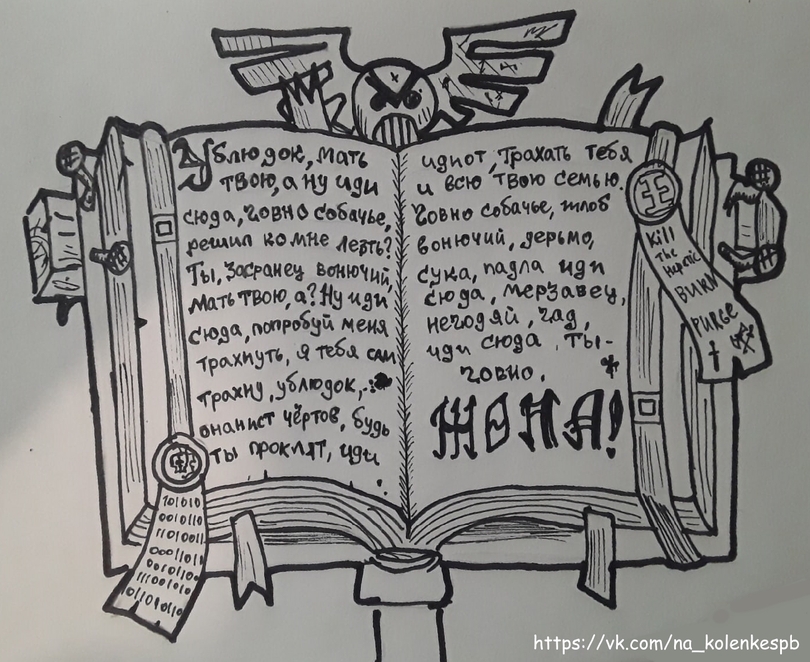 Ублюдок, мать
твою, а ну иди
сюда, говно собачье,
решил ко мне лезть?
Ты, засранец вонючий,
мать твою, а? Ну иди
сюда, попробуй меня
трахнуть, я тебя сам
трахну, ублюдок,
онанист чёртов, будь
ты проклят, иди
идиот, трахать тебя
и всю твою семью.
Говно собачье, жлоб
вонючий, дерьмо,
сука, падла иди
сюда, мерзавец,
негодяй, гад,
иди сюда. Ты-
говно,
ЖОПА!
Kill
The
Heretic
BURN
PURGE
https://vk.com/na_kolenkespb